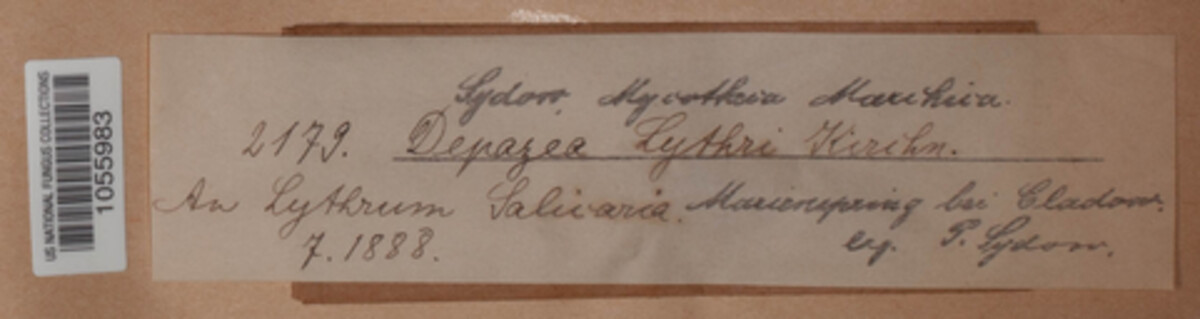 US NATIONAL FUNGUS COLLECTIONS
1055983
Sydow, Mycotheca Marchica.
2179. Depazea Lythri Kirchn.
An Lythrum Salicaria. Marienspring bei Cladow.
7. 1888. leg. P. Sydow.